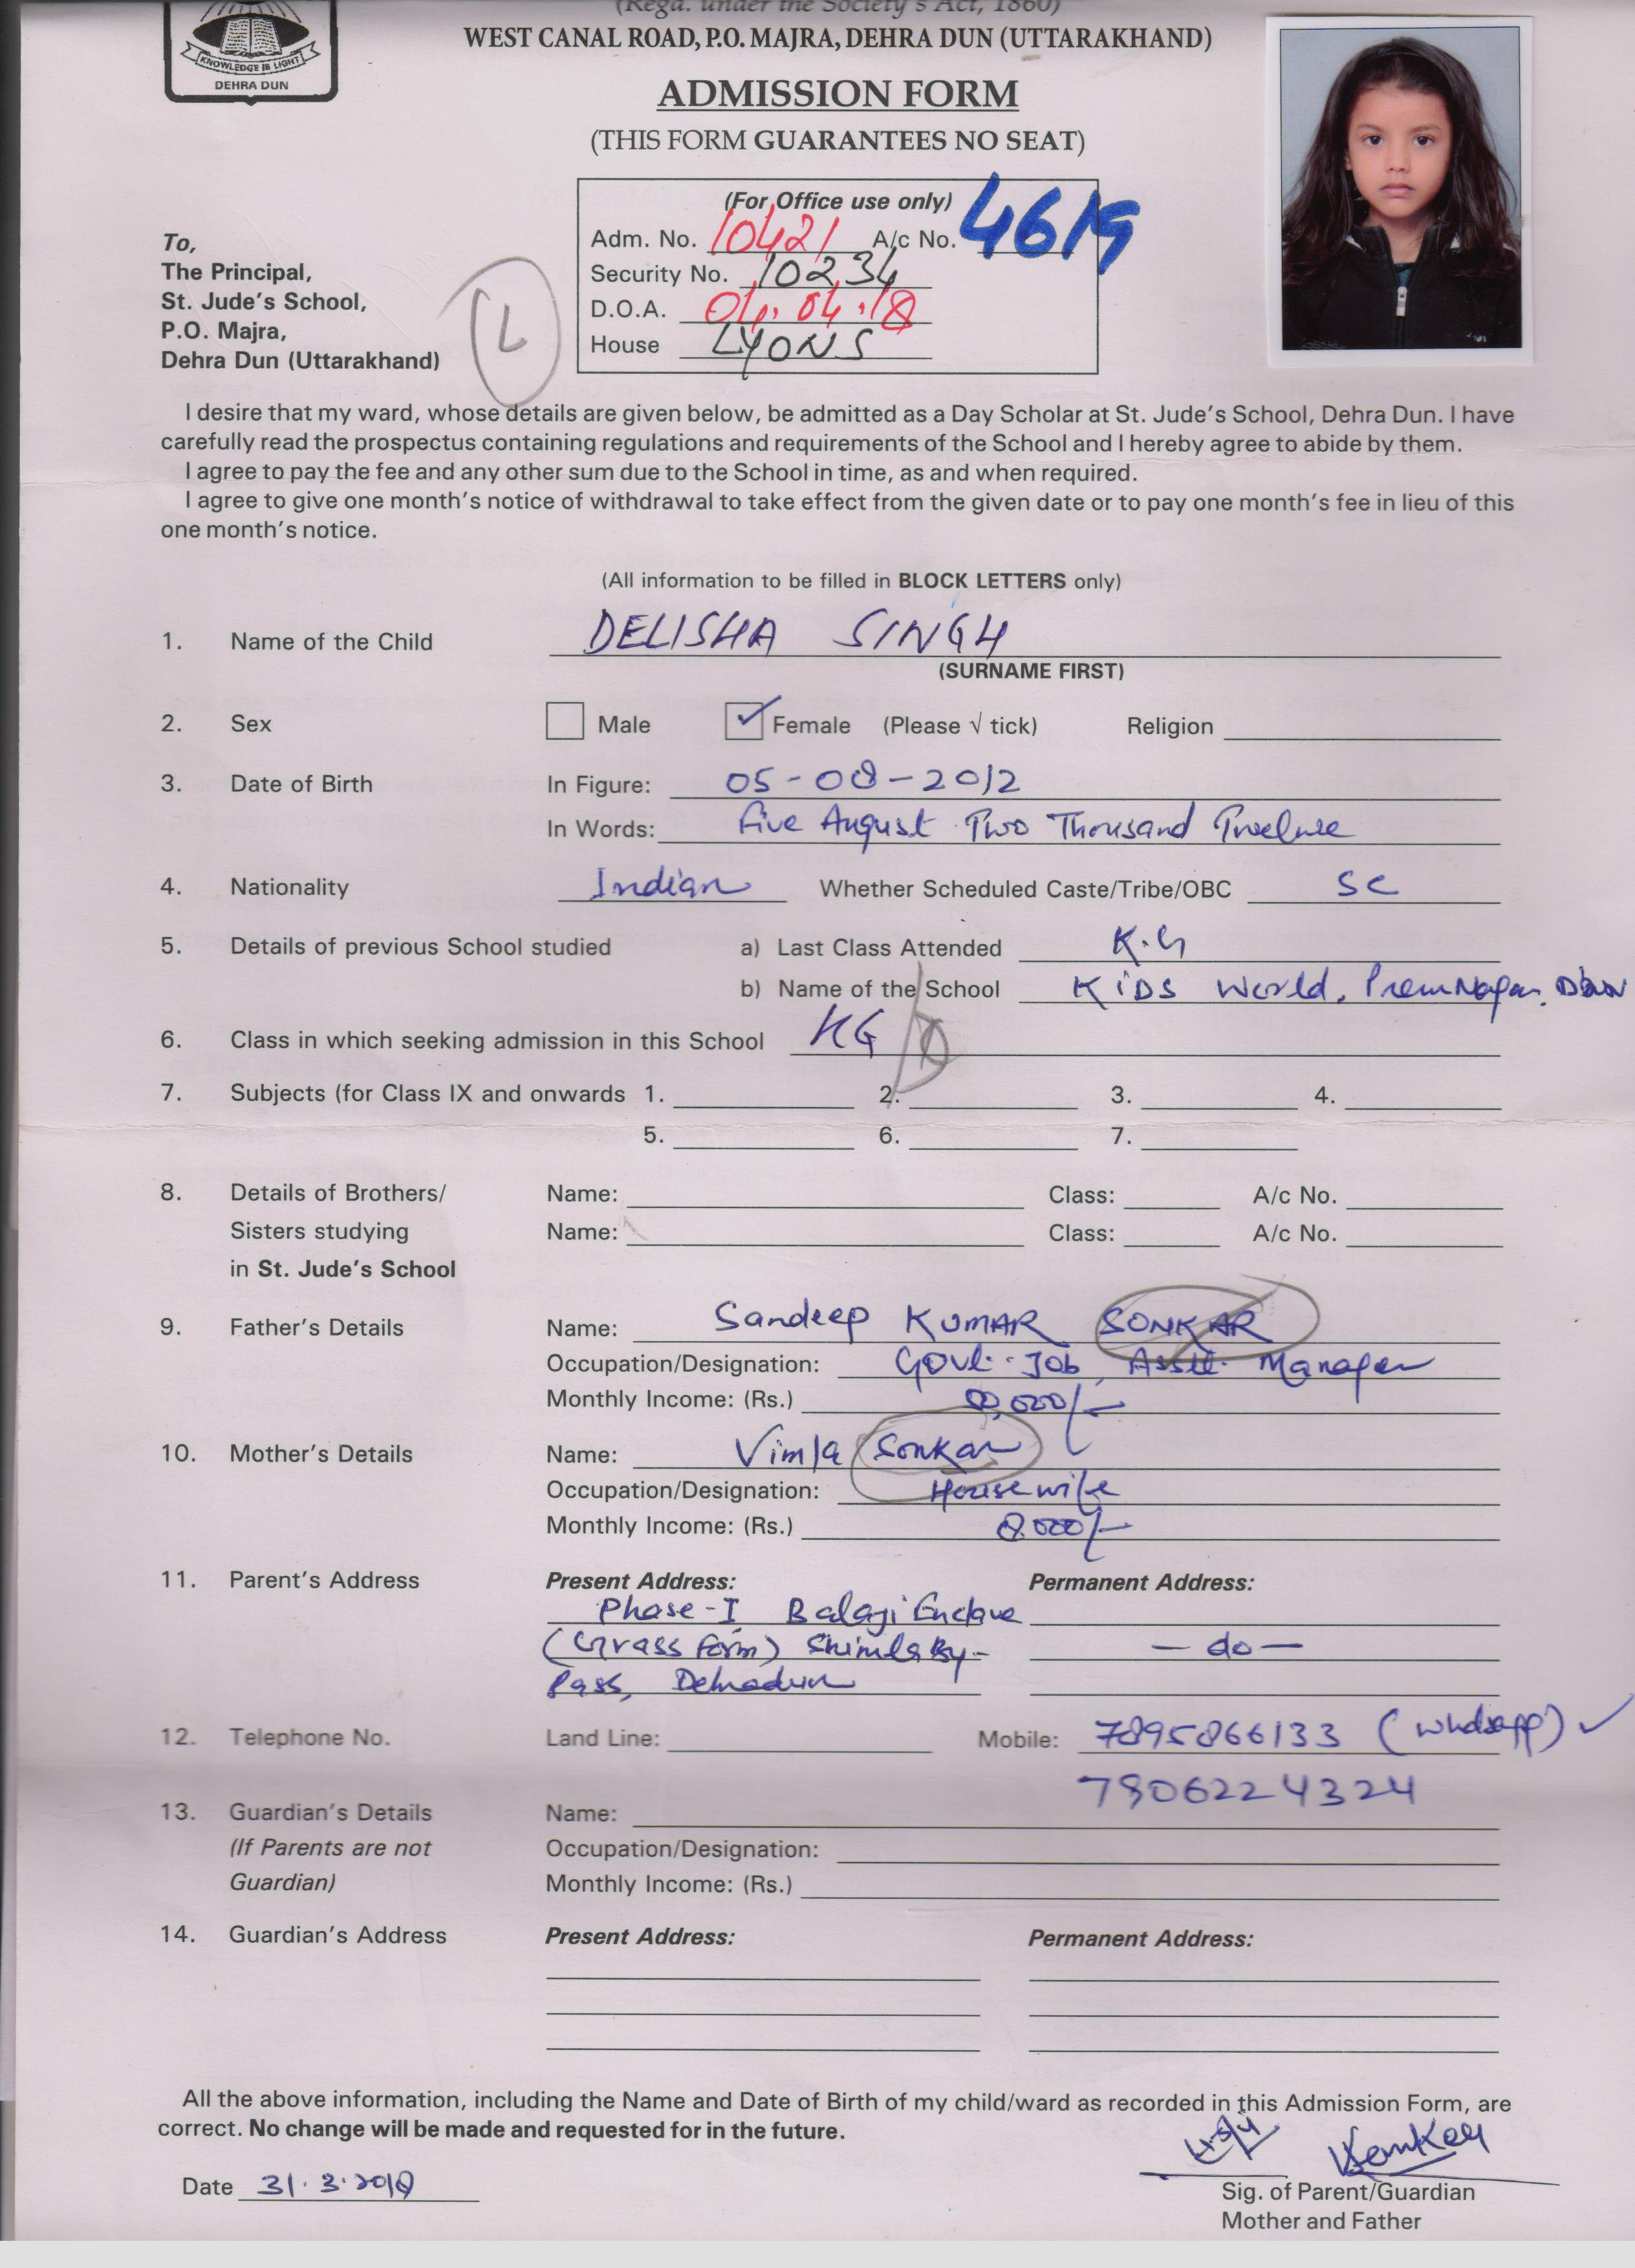 (Regd. under the Society's Act, 1860)
WEST CANAL ROAD, P.O. MAJRA, DEHRA DUN (UTTARAKHAND)
KNOWLEDGE IS LIGHT
DEHRA DUN
ADMISSION FORM
(THIS FORM GUARANTEES NO SEAT)
(For Office use only)
Adm. No. 10421 A/c No. 4619
Security No. 10234
D.O.A. 04.04.18
House LYONS
To,
The Principal,
St. Jude's School,
P.O. Majra,
Dehra Dun (Uttarakhand)
L
I desire that my ward, whose details are given below, be admitted as a Day Scholar at St. Jude's School, Dehra Dun. I have
carefully read the prospectus containing regulations and requirements of the School and I hereby agree to abide by them.
I agree to pay the fee and any other sum due to the School in time, as and when required.
I agree to give one month's notice of withdrawal to take effect from the given date or to pay one month's fee in lieu of this
one month's notice.
(All information to be filled in BLOCK LETTERS only)
1. Name of the Child DELISHA SINGH
(SURNAME FIRST)
2. Sex Male ✓ Female (Please √ tick) Religion
3. Date of Birth In Figure: 05-08-2012
In Words: Five August Two Thousand Twelve
4. Nationality Indian Whether Scheduled Caste/Tribe/OBC SC
5. Details of previous School studied a) Last Class Attended K.G
b) Name of the School KIDS World, PremNagar, D
6. Class in which seeking admission in this School KG
7. Subjects (for Class IX and onwards 1. 2. 3. 4.
5. 6. 7.
8. Details of Brothers/ Name: Class: A/c No.
Sisters studying Name: Class: A/c No.
in St. Jude's School
9. Father's Details Name: Sandeep KUMAR SONKAR
Occupation/Designation: Govt. Job, Asstt. Manager
Monthly Income: (Rs.)
10. Mother's Details Name: Vimla Sonkar
Occupation/Designation: House wife
Monthly Income: (Rs.) 8000/-
11. Parent's Address Present Address: Permanent Address:
Phase-I Balaji Enclave
(Grass Farm) Shimla By- — do —
Pass, Dehradun
12. Telephone No. Land Line: Mobile: 7895866133 (whatsapp) ✓
7906224324
13. Guardian's Details Name:
(If Parents are not Occupation/Designation:
Guardian) Monthly Income: (Rs.)
14. Guardian's Address Present Address: Permanent Address:
All the above information, including the Name and Date of Birth of my child/ward as recorded in this Admission Form, are
correct. No change will be made and requested for in the future.
Date 31.3.2018
Sig. of Parent/Guardian
Mother and Father